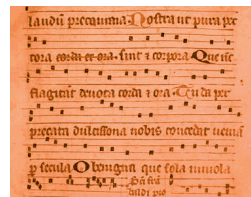 laudū precconia Nostra ut pura pec
tora corda et ora. sint z corpora Que sic
flagitat devota corda z ora Tu da per
precata dulcisona nobis concedat venia
p secula O benigna que sola inviola